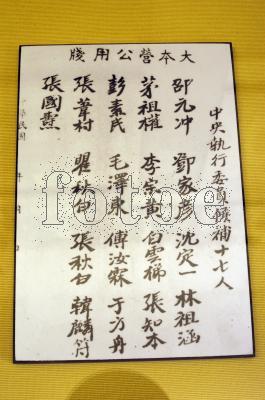 大本營公用牋
中央執行委員候補十七人
邵元冲 鄧家彥 沈定一 林祖涵
茅祖權 李宗黃 白雲梯 張知本
彭素民 毛澤東 傅汝霖 于方舟
張葦村 瞿秋白 張秋白 韓麟符
張國燾
華民國 年 月 日
fotoe